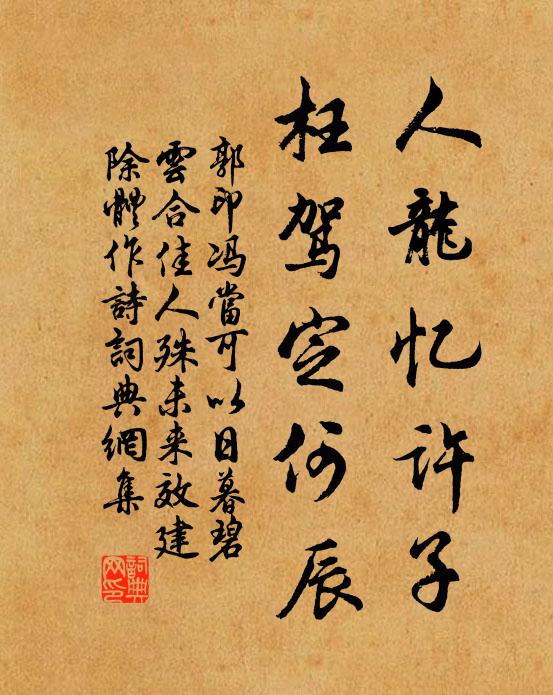 人龍忆许子
枉驾定何辰
郭印馮當可以日暮碧
雲合佳人殊未来效建
除體作詩詞典網集
詞典网印